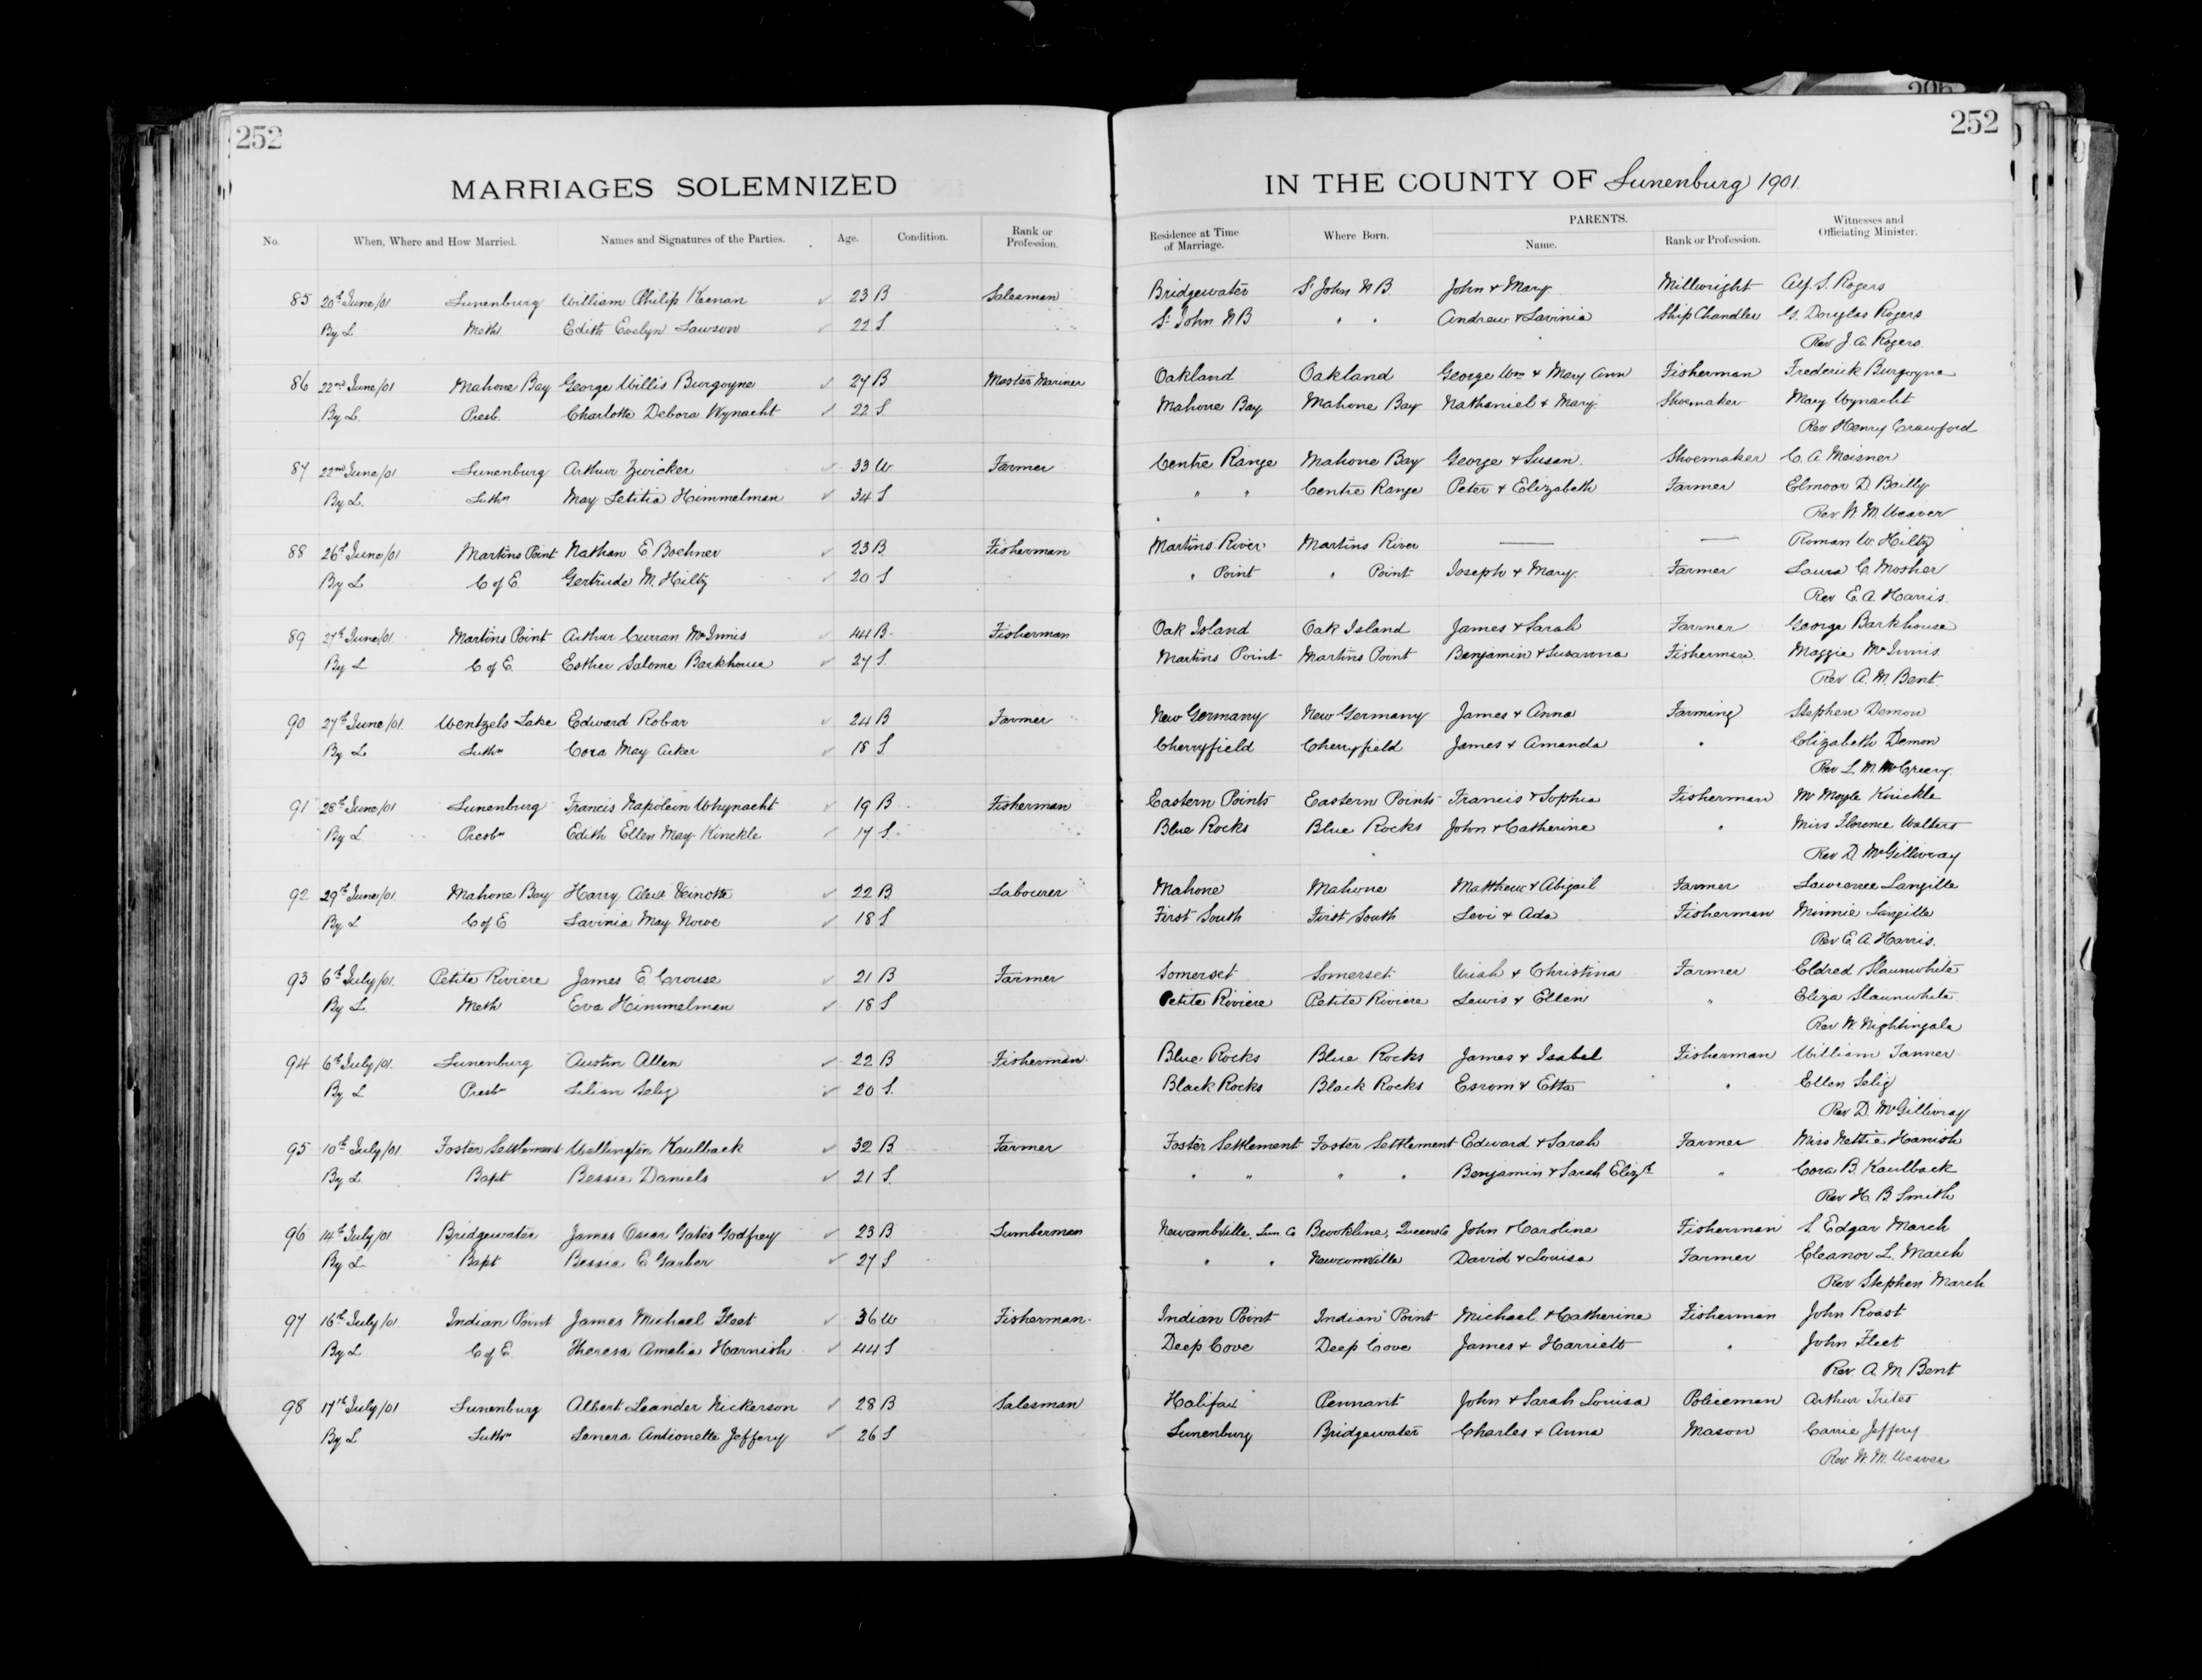 252
252
MARRIAGES SOLEMNIZED IN THE COUNTY OF Lunenburg 1901.
No. When, Where and How Married. Names and Signatures of the Parties. Age. Condition. Rank or Profession. Residence at Time of Marriage. Where Born. PARENTS. Name. Rank or Profession. Witnesses and Officiating Minister.
85 20th June/01 Lunenburg William Philip Keenan 23 B Salesman Bridgewater St John N B John & Mary Millwright Alf. S. Rogers
By L Meth. Edith Evelyn Lawson 22 S St John N B " " Andrew & Lavinia Ship Chandler G. Douglas Rogers
Rev J. A. Rogers
86 22nd June/01 Mahone Bay George Willis Burgoyne 27 B Master Mariner Oakland Oakland George Wm & Mary Ann Fisherman Frederick Burgoyne
By L. Presb. Charlotte Debora Wynacht 22 S Mahone Bay Mahone Bay Nathaniel & Mary Shoemaker Mary Wynacht
Rev Henry Crawford
87 22nd June/01 Lunenburg Arthur Zwicker 33 W Farmer Centre Range Mahone Bay George & Susan Shoemaker C. A. Meisner
By L. Luthn May Letitia Himmelman 34 S " " Centre Range Peter & Elizabeth Farmer Elmoor D. Bailly
Rev. W. M. Weaver
88 26th June/01 Martins Point Nathan E. Boehner 23 B. Fisherman Martins River Martins River — — Roman W. Hiltz
By L. C of E. Gertrude M. Hiltz 20 S " Point " Point Joseph & Mary Farmer Laura C. Mosher
Rev E. A. Harris.
89 27th June/01 Martins Point Arthur Curran McInnis 44 B. Fisherman Oak Island Oak Island James & Sarah Farmer George Barkhouse
By L C of E. Esther Salome Barkhouse 27 S. Martins Point Martins Point Benjamin & Susanna Fisherman Maggie McInnis
Rev A. M. Bent.
90 27th June/01 Wentzels Lake Edward Robar 24 B Farmer New Germany New Germany James & Anna Farming Stephen Demon
By L Luthn Cora May Acker 18 S Cherryfield Cherryfield James & Amanda " Elizabeth Demon
Rev L. M. McCreery
91 28th June/01 Lunenburg Francis Napolein Whynacht 19 B Fisherman Eastern Points Eastern Points Francis & Sophia Fisherman Mr Moyle Knickle
By L Presbn Edith Ellen May Kinckle 17 S. Blue Rocks Blue Rocks John & Catherine " Miss Florence Walters
Rev D. McGillivray
92 29th June/01 Mahone Bay Harry Alex Veinotte 22 B Labourer Mahone Mahone Matthew & Abigail Farmer Lawrence Langille
By L C of E Lavinia May Nowe 18 S First South First South Levi & Ada Fisherman Minnie Langille
Rev E. A. Harris.
93 6th July/01. Petite Riviere James E. Crouse 21 B Farmer Somerset Somerset Uriah & Christina Farmer Eldred Slaunwhite
By L. Meth Eva Himmelman 18 S Petite Riviere Petite Riviere Lewis & Ellen " Eliza Slaunwhite
Rev W. Nightingale
94 6th July/01. Lunenburg Austin Allen 22 B Fisherman Blue Rocks Blue Rocks James & Isabel Fisherman William Tanner
By L Presbn Lilian Selig 20 S. Black Rocks Black Rocks Esrom & Etta " Ellen Selig
Rev D. McGillivray
95 10th July/01 Foster Settlement Wellington Kaulback 32 B. Farmer Foster Settlement Foster Settlement Edward & Sarah Farmer Miss Nettie Hanish
By L Bapt Bessie Daniels 21 S. " " " " Benjamin & Sarah Elizth " Cora B. Kaulback
Rev H. B Smith
96 14th July/01 Bridgewater James Oscar Gates Godfrey 23 B Lumberman Newcombville, Lun. Co Brookline, Queens Co John & Caroline Fisherman S. Edgar March
By L Bapt Bessie E Garber 27 S " " Newcomville David & Louisa Farmer Eleanor L. March
Rev Stephen March
97 16th July/01 Indian Point James Michael Fleet 36 W Fisherman Indian Point Indian Point Michael & Catherine Fisherman John Roast
By L C of E. Theresa Amelia Harnish 44 S Deep Cove Deep Cove James & Harriett " John Fleet
Rev. A. M Bent
98 17th July/01 Lunenburg Albert Leander Nickerson 28 B Salesman Halifax Pennant John & Sarah Louisa Policeman Arthur Trites
By L Luthn Lenora Antionette Jeffery 26 S Lunenburg Bridgewater Charles & Anna Mason Carrie Jeffery
Rev. W. M. Weaver